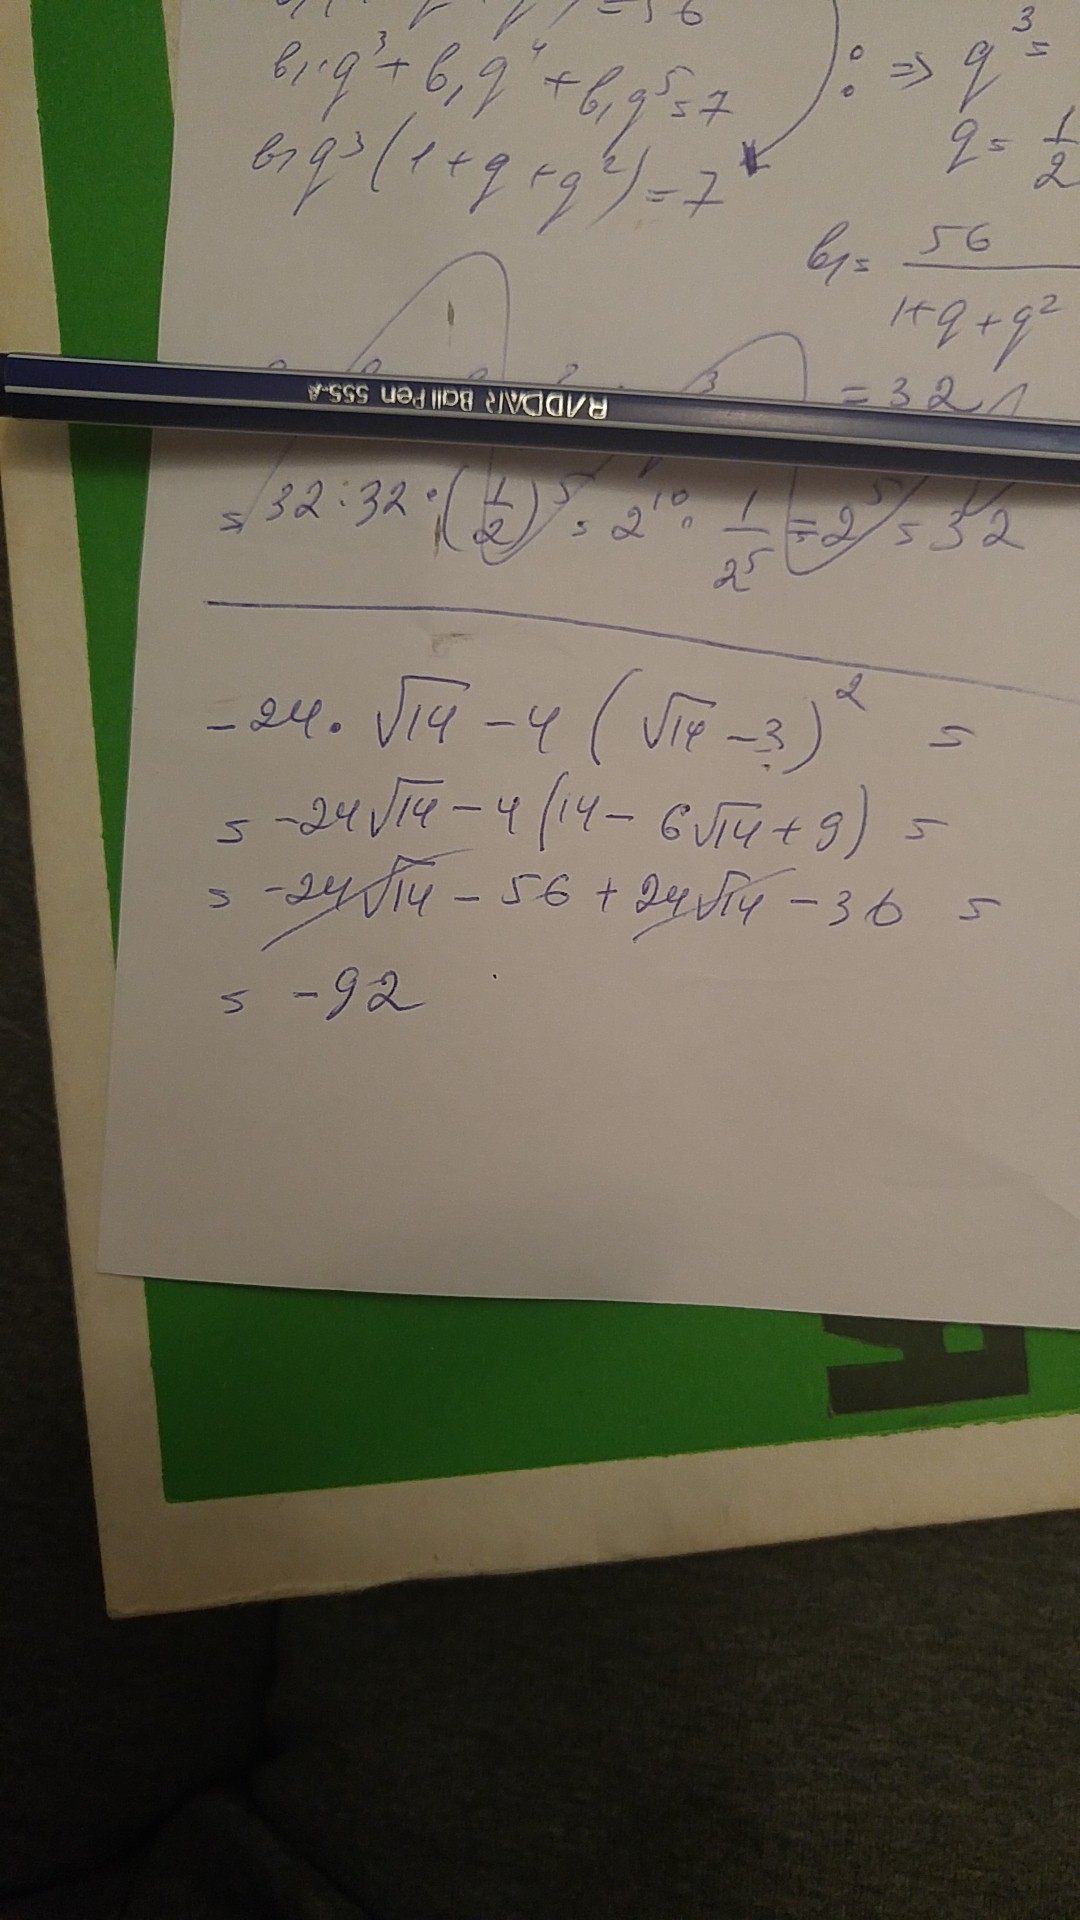 = 56
b₁·q³ + b₁q⁴ + b₁q⁵ = 7
b₁q³(1 + q + q²) = 7
: => q³ =
q = 1/2
b₁ = 56/(1+q+q²)
= 32
RADDAR Ball Pen 555-A
= 32·32·(1/2)⁵ = 2¹⁰·1/2⁵ = 2⁵ = 32
-24·√14 - 4(√14 - 3)² =
= -24√14 - 4(14 - 6√14 + 9) =
= -24√14 - 56 + 24√14 - 36 =
= -92